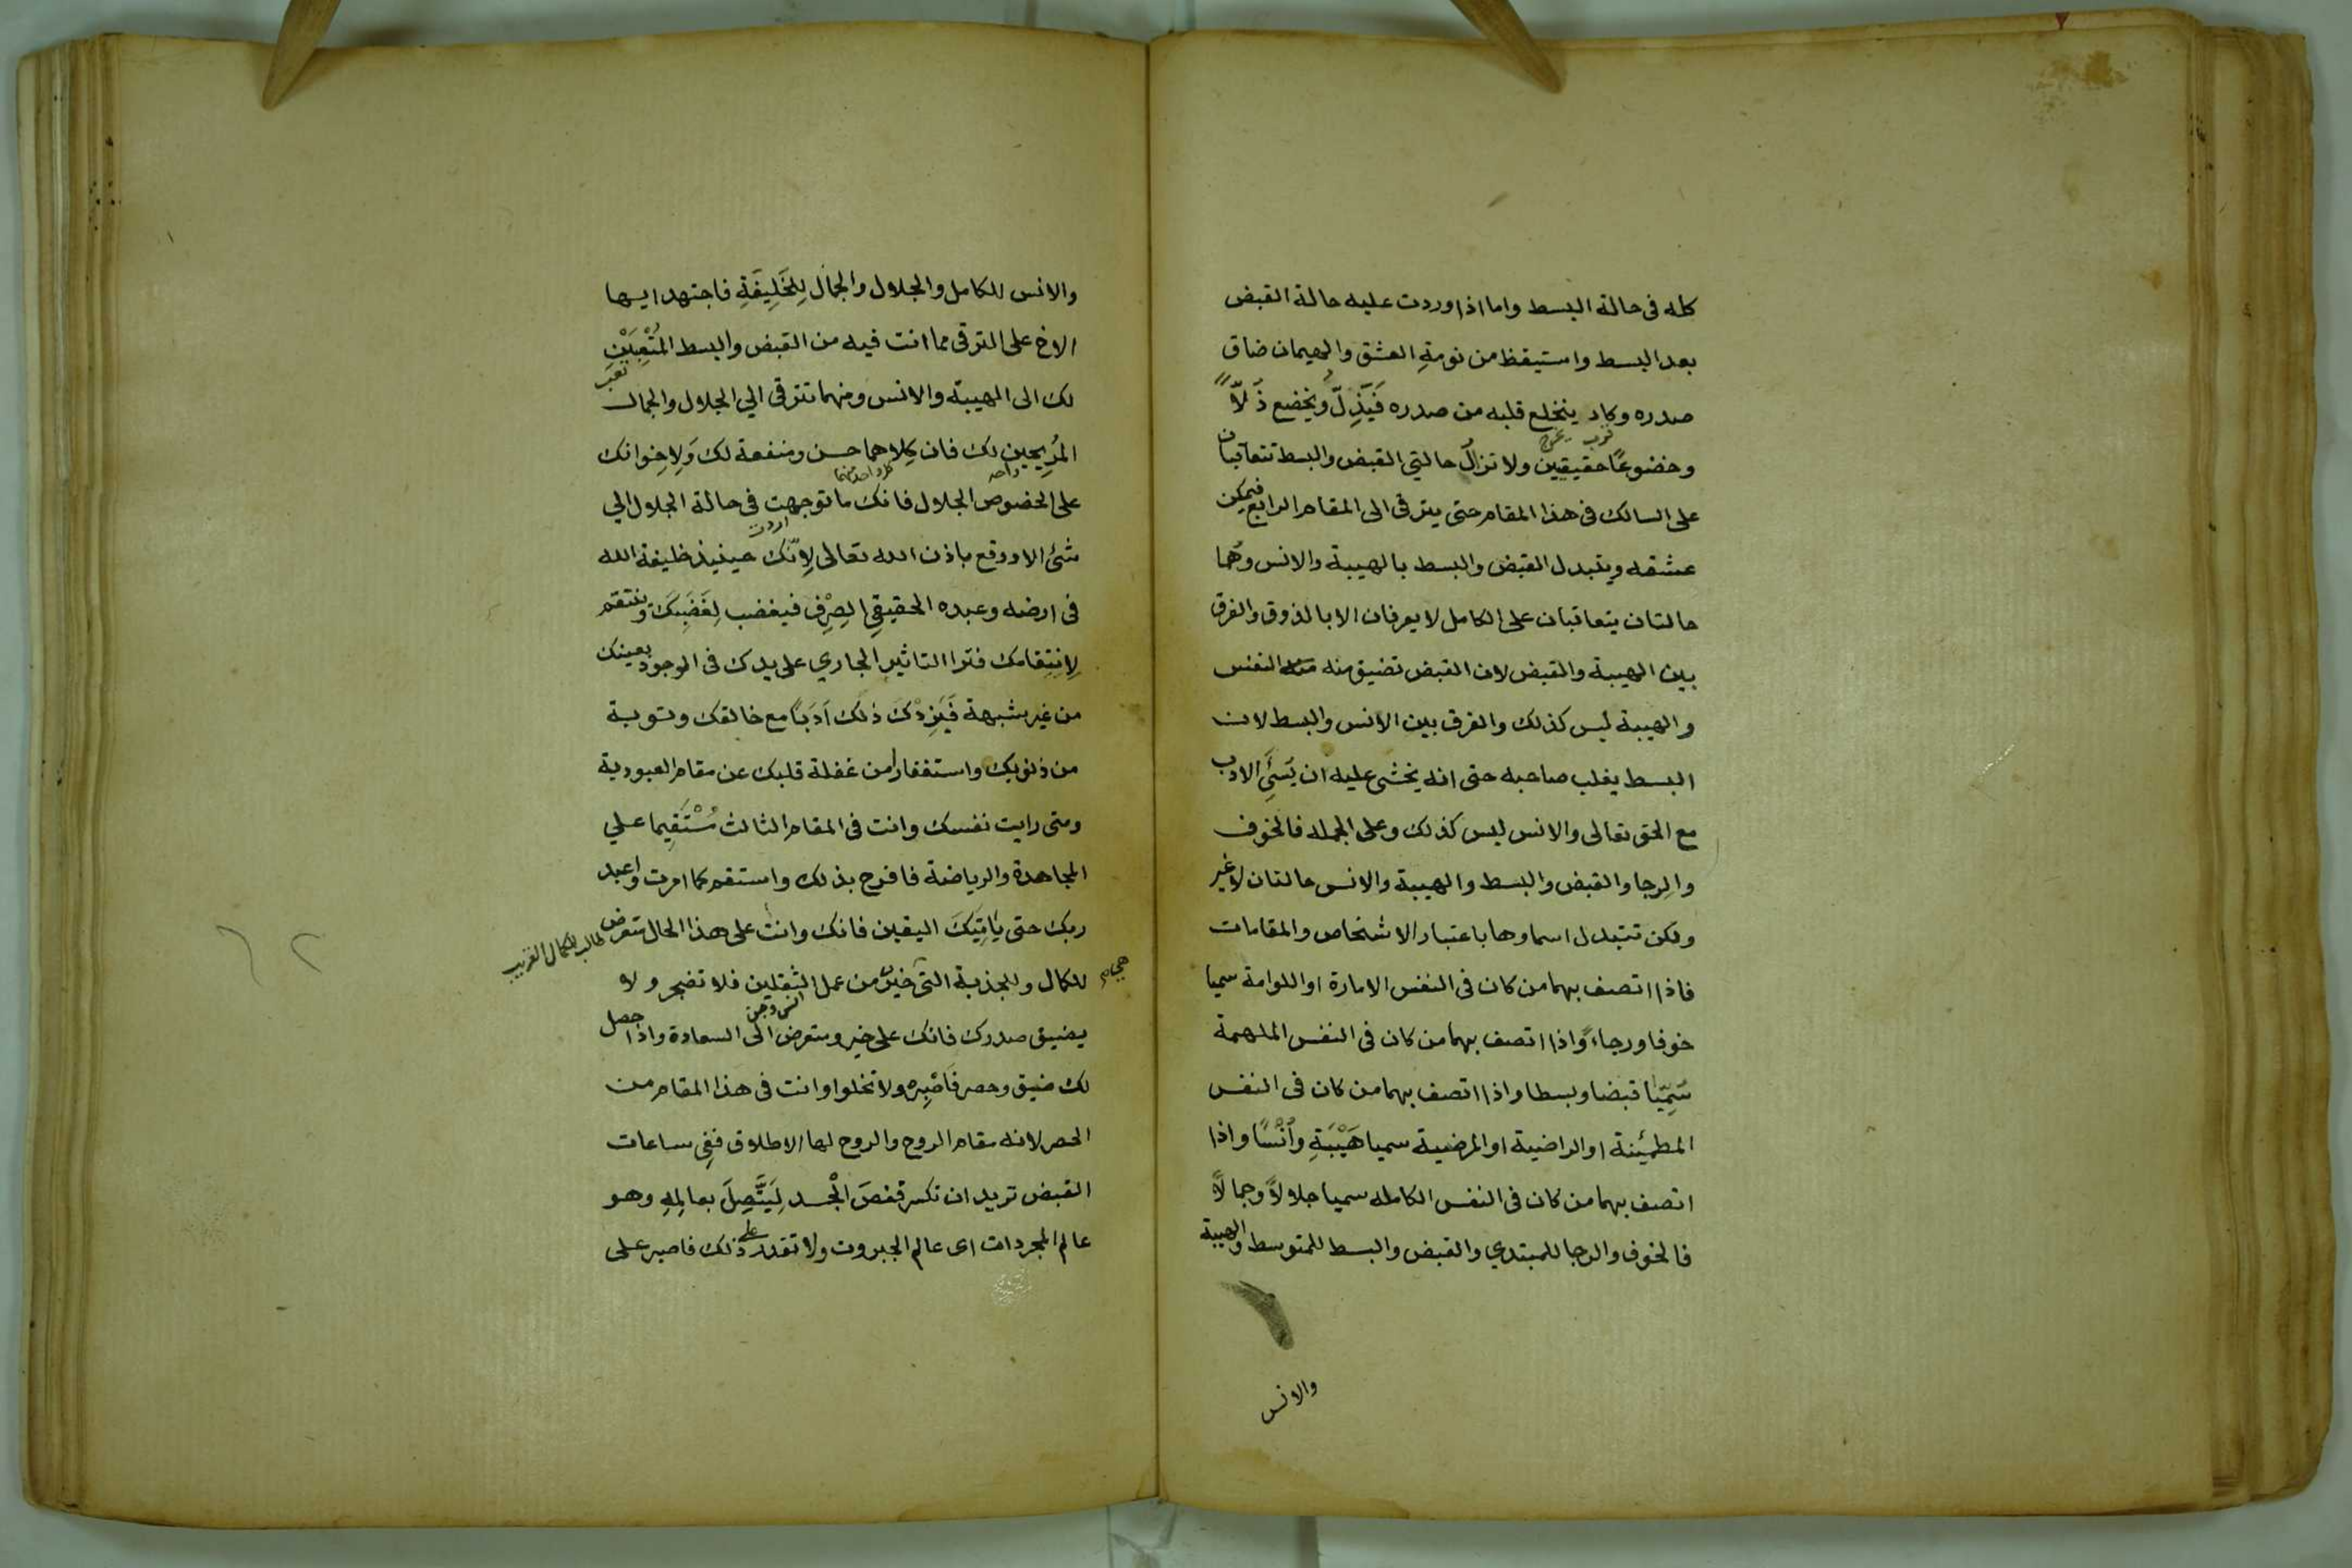 كله فى حالة البسط واما اذا وردت عليه حالة القبض
بعد البسط واستيقظ من نومةِ العشق والهيمان ضاق
صدره وكاد ينخلع قلبه من صدره فَيَذِلّ ويخضع ذلاً
وخضوعًا حقيقيين ولا تزالُ حالتي القبض والبسط تتعاقبان
على السالك فى هذا المقام حتى يترقى الى المقام الرابع فيمكن
عشقه ويتبدل القبض والبسط بالهيبة والانس وهما
حالتان يتعاقبان على الكامل لا يعرفان الا بالذوق والفرق
بين الهيبة والقبض لان القبض تضيق منه النفس
والهيبة ليس كذلك والفرق بين الانس والبسط لان
البسط يغلب صاحبه حتى انه يخشى عليه ان يَسَئَِ الادب
مع الحق تعالى والانس ليس كذلك وعلى الجمله فالخوف
والرجا والقبض والبسط والهيبة والانس حالتان لاغير
ولكن تتبدل اسماوها باعتبار الاشخاص والمقامات
فاذا اتصف بهما من كان فى النفس الامارة او اللوامة سميا
خوفا ورجاءً واذا اتصف بهما من كان فى النفس الملهمة
سَمِيّا قبضا وبسطا واذا اتصف بهما من كان فى النفس
المطمئنة او الراضية او المرضية سميا هَيْبَةِ وأُنْسًا واذا
اتصف بهما من كان فى النفس الكامله سميا جلالاً وجمالاً
فالخوف والرجا للمبتدي والقبض والبسط للمتوسط والهيبة
والانس
والانس للكامل والجلال والجمال لِلخَلِيفَةِ فاجتهد ايها
الاخ على الترقى مما انت فيه من القبض والبسط المُتْعِبَيْنِ
تعب
لك الى الهيبة والانس ومنهما تترقى الي الجلال والجمال
المُرِيحين لك فان كِلاهما حسن ومنفعة لك وَلِاخوانك
كل واحد منهما
على الخصوص الجلال فانك ما توجهت فى حالة الجلال الي
اردت
شئ الا ووقع باذن الله تعالى لِانّك حينيذ خليفة الله
فى ارضه وعبده الحقيقيِ الصِرْفِ فيغضب لِغَضَبِكَ وينتقم
لِانتِقامك فترا التاثير الجاري على يدك فى الوجود بعينك
من غير شبهة فَيَزِدْكَ ذلك اَدَبًا مع خالقك وتوبة
من ذنوبك واستغفارا من غفلة قلبك عن مقام العبودية
ومتى رايت نفسك وانت فى المقام الثالث مُسْتَقِيما علي
المجاهدة والرياضة فافرح بذلك واستقم كما امرت واعبد
ربك حتى يَاتِيَكَ اليقين فانك وانت على هذا الحال متعرض
طالب للكمال القريب
للكمال وللجذبة التي خير من عمل الثقلين فلا تضجر ولا
انس وجن
يضيق صدرك فانك على خير ومتعرض الى السعادة واذا حصل
لك ضيق وحصر فَاصْبِر ولا تخلوا وانت فى هذا المقام من
الحصر لانه مقام الروح والروح لها الاطلاق ففِي ساعات
القبض تريد ان تكسر قفصَ الْجسد لِيَتَّصِلَ بعالِمهِ وهو
عالم المجردات اى عالم الجبروت ولا تقدر على ذلك فاصبر على